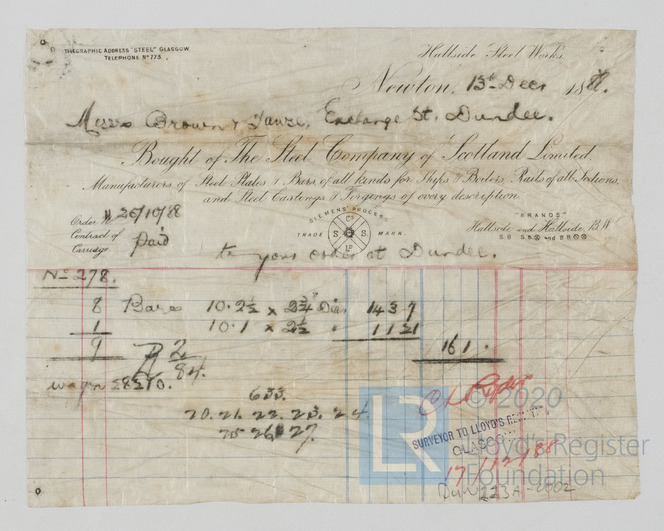 TELEGRAPHIC ADDRESS "STEEL" GLASGOW.
TELEPHONE No 773.
Hallside Steel Works
Newton, 13th Decr 188
Messrs Brown & Exchange St. Dundee.
Bought of The Steel Company of Scotland Limited.
Manufacturers of Steel Plates & Bars of all kinds for Ships & Boilers, Rails of all Sections,
and Steel Castings & Forgings of every description
Order No 26/10/88
Contract of
Carriage Paid
SIEMENS' PROCESS
TRADE MARK.
"BRANDS"
Hallside and Hallside, B.W
to your order at Dundee.
No 278.
8 Bars 10. 2½ x 2¾ Dia 14 3 7
1 10. 1 x 2½ " 1 1 21
9 16 1 .
2
84.
wagn 28270.
633.
20. 21. 22. 23. 24.
25 26 27.
SURVEYOR TO LLOYD'S REGISTER
GLASGOW
17/12/88
© 2020
LR
Lloyd's Register
Foundation